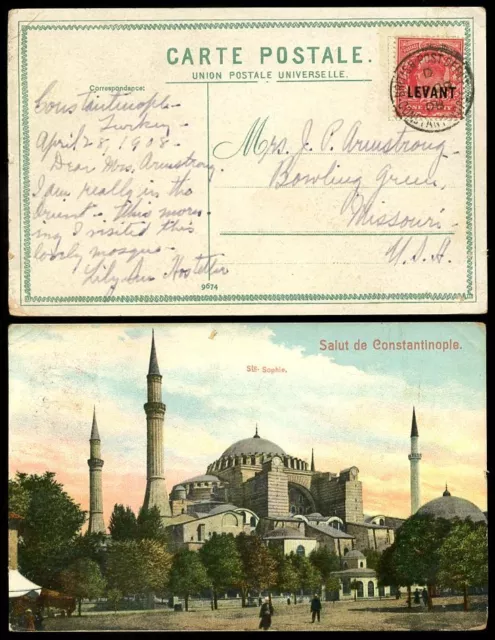 CARTE POSTALE.
UNION POSTALE UNIVERSELLE.
Correspondance:
LEVANT
Constantinople-
Turkey-
April 28, 1908-
Dear Mrs. Armstrong,
I am really in the
Orient- This morn-
ing I visited this
lovely mosque-
Lily Hostetter
Mrs. J. P. Armstrong
Bowling Green,
Missouri.
U.S.A.
9674
Salut de Constantinople.
Ste- Sophie.